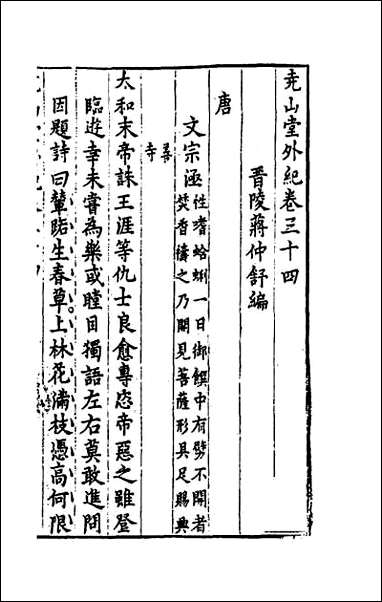 尭山堂外紀卷三十四
晋陵蔣仲舒編
唐
文宗涵性嗜蛤蜊一日御饌中有劈不開者
焚香禱之乃開見菩薩形具足賜興
善
寺
太和末帝誅王涯等仇士良愈專恣帝惡之雖登
臨遊幸未甞為樂或瞠目獨語左右莫敢進問
因題詩曰輦路生春草上林花滿枝憑高何限